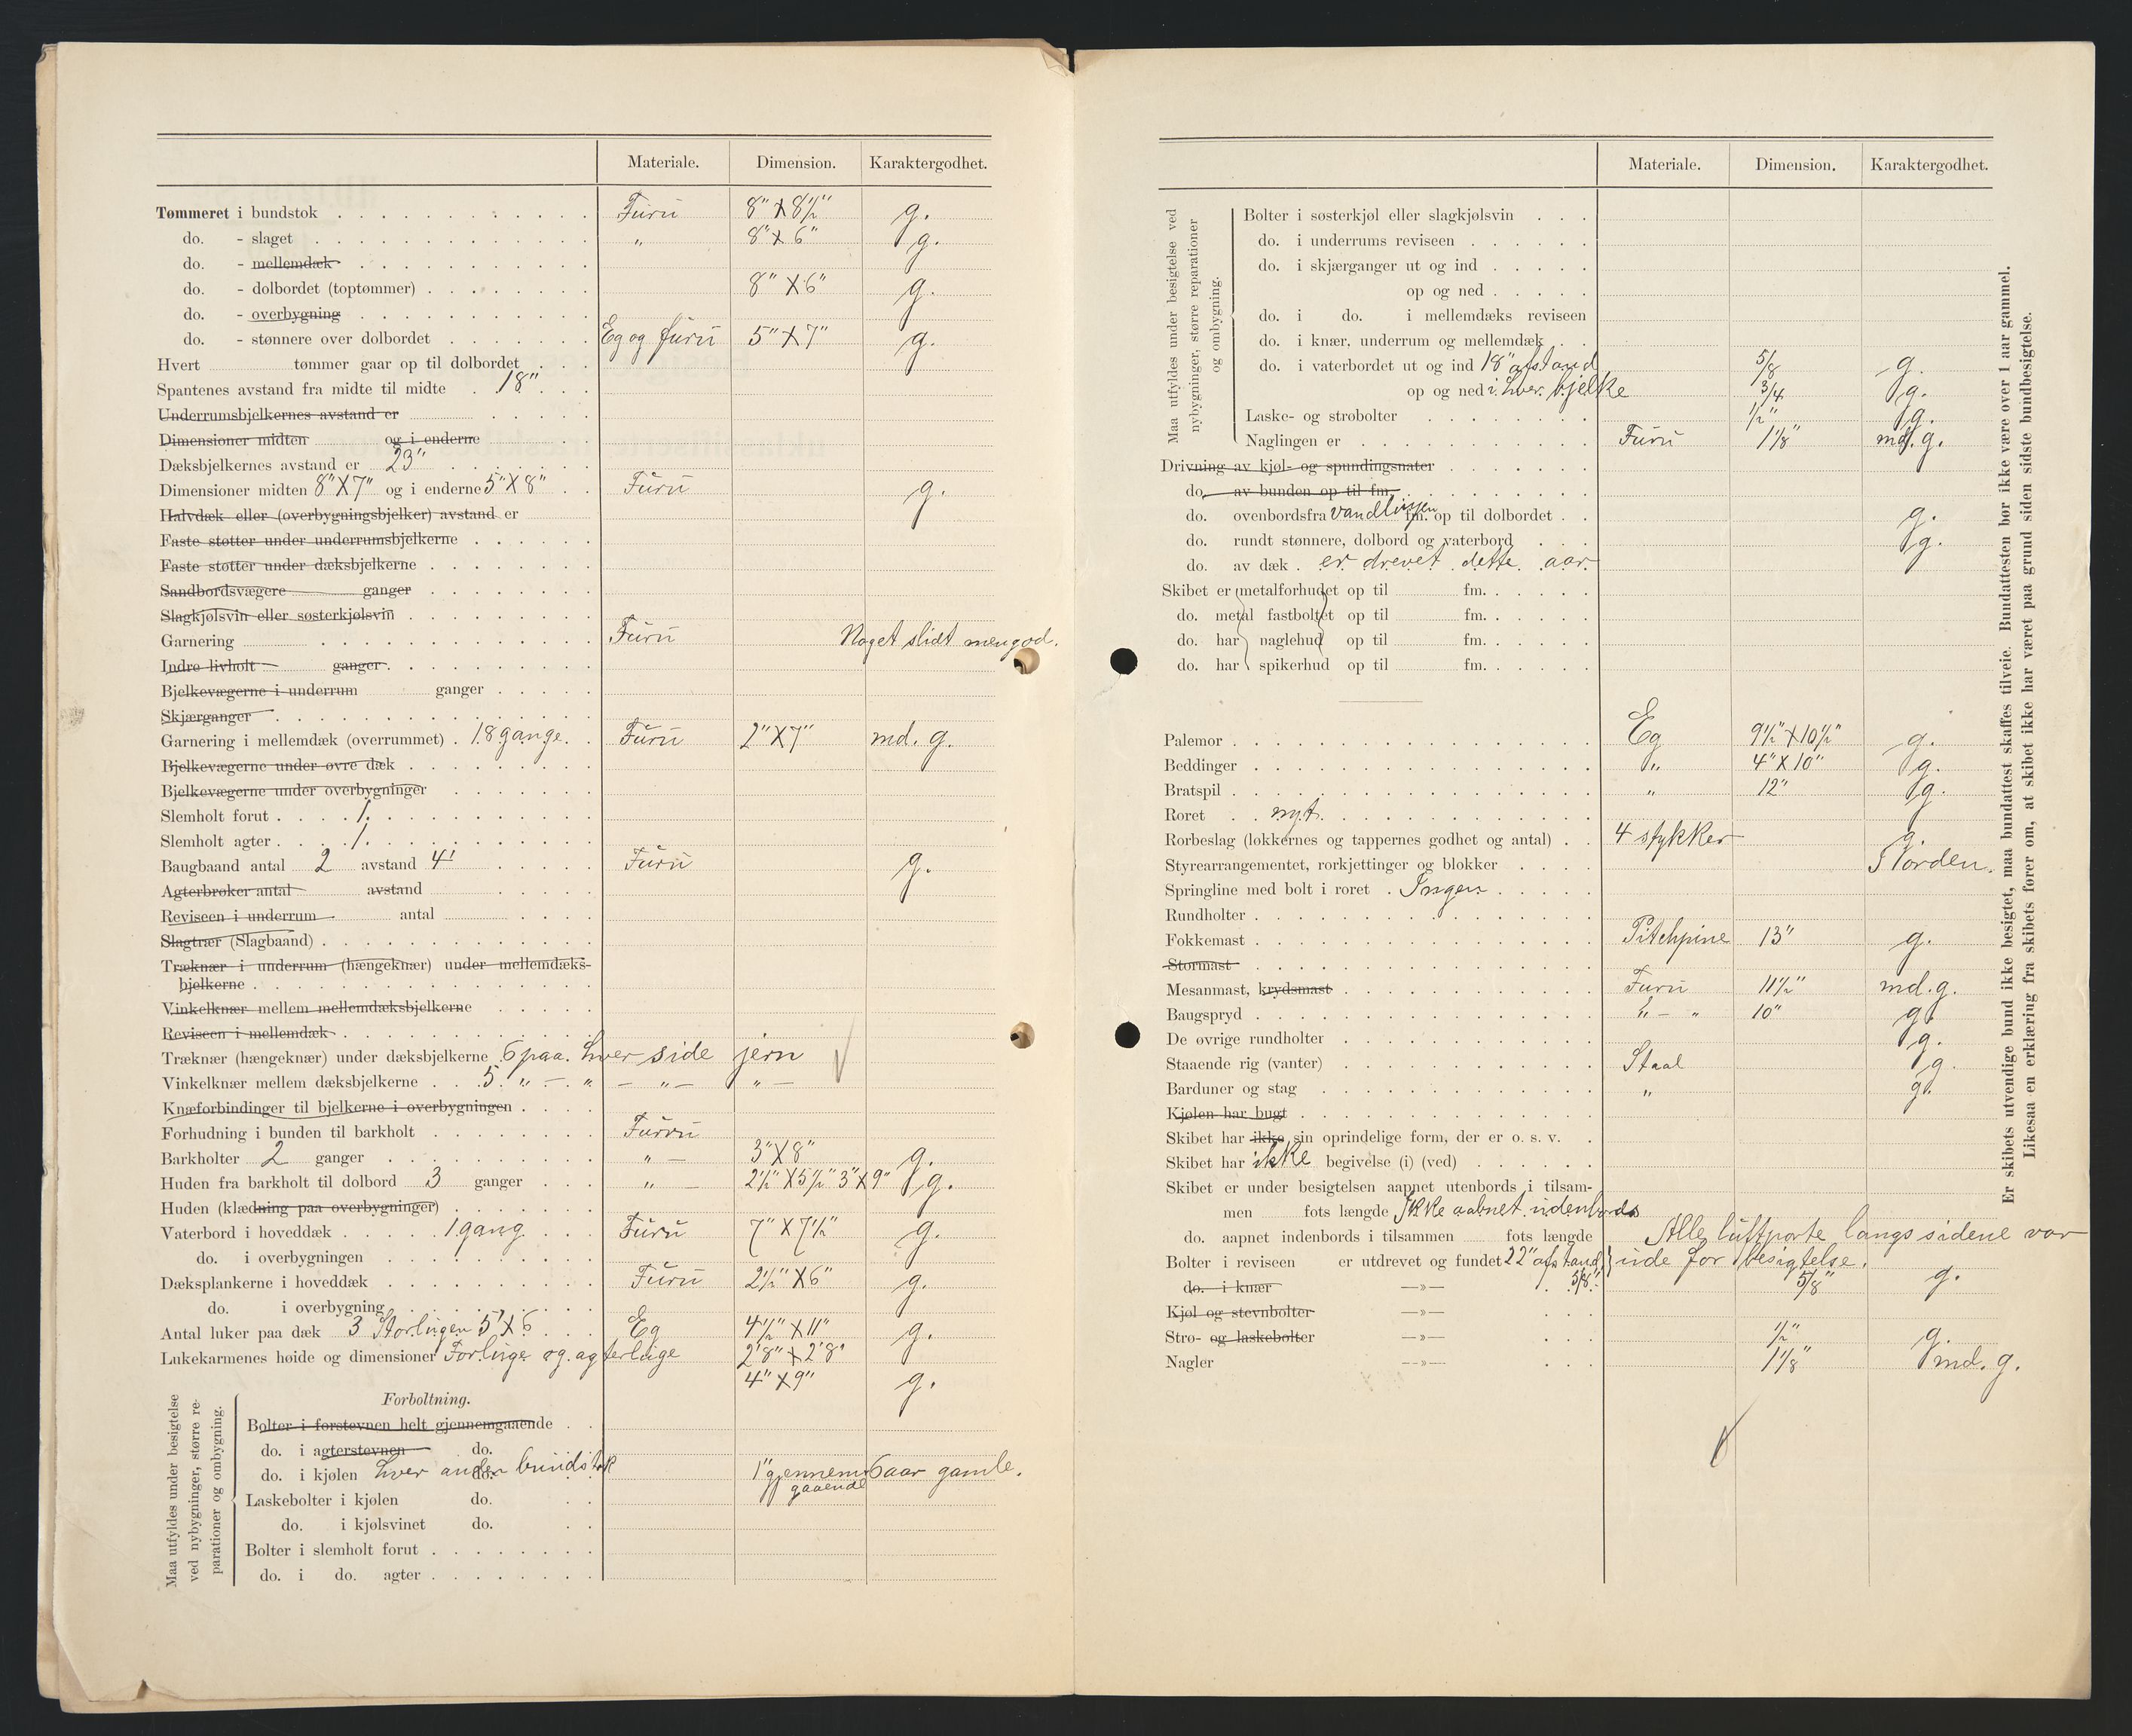 Materiale. Dimension. Karaktergodhet.
Tømmeret i bundstok Furu 8" X 8½" g.
do. - slaget " 8" X 6" g.
do. - mellemdæk
do. - dolbordet (toptømmer) 8" X 6" g.
do. - overbygning
do. - stønnere over dolbordet Eg og furu 5" X 7" g.
Hvert tømmer gaar op til dolbordet
Spantenes avstand fra midte til midte 18"
Underrumsbjelkernes avstand er
Dimensioner midten og i enderne
Dæksbjelkernes avstand er 23"
Dimensioner midten 8" X 7" og i enderne 5" X 8" Furu g.
Halvdæk eller (overbygningsbjelker) avstand er
Faste støtter under underrumsbjelkerne
Faste støtter under dæksbjelkerne
Sandbordsvægere ganger
Slagkjølsvin eller søsterkjølsvin
Garnering Furu Noget slidt men god.
Indre livholt ganger
Bjelkevægerne i underrum ganger
Skjærganger
Garnering i mellemdæk (overrummet) 18 gange. Furu 2" X 7" md. g.
Bjelkevægerne under øvre dæk
Bjelkevægerne under overbygninger
Slemholt forut 1.
Slemholt agter 1.
Baugbaand antal 2 avstand 4' Furu g.
Agterbrøker antal avstand
Reviseen i underrum antal
Slagtrær (Slagbaand)
Træknær i underrum (hængeknær) under mellemdæks-
bjelkerne
Vinkelknær mellem mellemdæksbjelkerne
Reviseen i mellemdæk
Træknær (hængeknær) under dæksbjelkerne 6 paa hver side jern
Vinkelknær mellem dæksbjelkerne 5 " — " — " — " —
Knæforbindinger til bjelkerne i overbygningen
Forhudning i bunden til barkholt Furu
Barkholter 2 ganger " — 3" X 8" g.
Huden fra barkholt til dolbord 3 ganger " — 2½" X 5½" 3" X 9" g.
Huden (klædning paa overbygninger)
Vaterbord i hoveddæk 1 gang Furu 7" X 7½" g.
do. i overbygningen
Dæksplankerne i hoveddæk Furu 2½" X 6" g.
do. i overbygning
Antal luker paa dæk 3 Storlugen 5' X 6 Eg 4½" X 11" g.
Lukekarmenes høide og dimensioner Forluge og agterluge 2'8" X 2'8"
4" X 9" g.
Maa utfyldes under besigtelse
ved nybygninger, større re-
parationer og ombygning.
Forboltning.
Bolter i forstevnen helt gjennemgaaende
do. i agterstevnen do.
do. i kjølen do. hver anden bundstok 1" gjennem- 6 aar gamle.
gaaende
Laskebolter i kjølen do.
do. i kjølsvinet do.
Bolter i slemholt forut
do. i do. agter
Materiale. Dimension. Karaktergodhet.
Maa utfyldes under besigtelse ved
nybygninger, større reparationer
og ombygning.
Bolter i søsterkjøl eller slagkjølsvin
do. i underrums reviseen
do. i skjærganger ut og ind
op og ned
do. i do. i mellemdæks reviseen
do. i knær, underrum og mellemdæk
do. i vaterbordet ut og ind 18" afstand 5/8 g.
op og ned i hver bjelke 3/4 g.
Laske- og strøbolter ½" g.
Naglingen er Furu 1 1/8" md. g.
Drivning av kjøl- og spundingsnater
do. av bunden op til fm.
do. ovenbords fra vandlinjen fm. op til dolbordet g.
do. rundt stønnere, dolbord og vaterbord g.
do. av dæk er drevet dette aar
Skibet er metalforhudet op til fm.
do. metal fastboltet op til fm.
do. har naglehud op til fm.
do. har spikerhud op til fm.
Palemor Eg 9½" X 10½" g.
Beddinger " 4" X 10" g.
Bratspil " 12" g.
Roret nyt.
Rorbeslag (løkkernes og tappernes godhet og antal) 4 stykker g.
Styrearrangementet, rorkjettinger og blokker I orden.
Springline med bolt i roret Ingen
Rundholter
Fokkemast Pitchpine 13" g.
Stormast
Mesanmast, krydsmast Furu 11½" md. g.
Baugspryd " — " 10" g.
De øvrige rundholter g.
Staaende rig (vanter) Staal g.
Barduner og stag " g.
Kjølen har bugt
Skibet har ikke sin oprindelige form, der er o. s. v.
Skibet har ikke begivelse (i) (ved)
Skibet er under besigtelsen aapnet utenbords i tilsam-
men fots længde Ikke aabnet udenbords
do. aapnet indenbords i tilsammen fots længde Alle luftporte langs sidene var
Bolter i reviseen er utdrevet og fundet 22" afstand ude for besigtelse.
do. i knær —»— 5/8" 5/8" g.
Kjøl og stevnbolter —»—
Strø- og laskebolter —»— ½" g.
Nagler —»— 1 1/8" md. g.
Er skibets utvendige bund ikke besigtet, maa bundattest skaffes tilveie. Bundattesten bør ikke være over 1 aar gammel.
Likesaa en erklæring fra skibets fører om, at skibet ikke har været paa grund siden sidste bundbesigtelse.